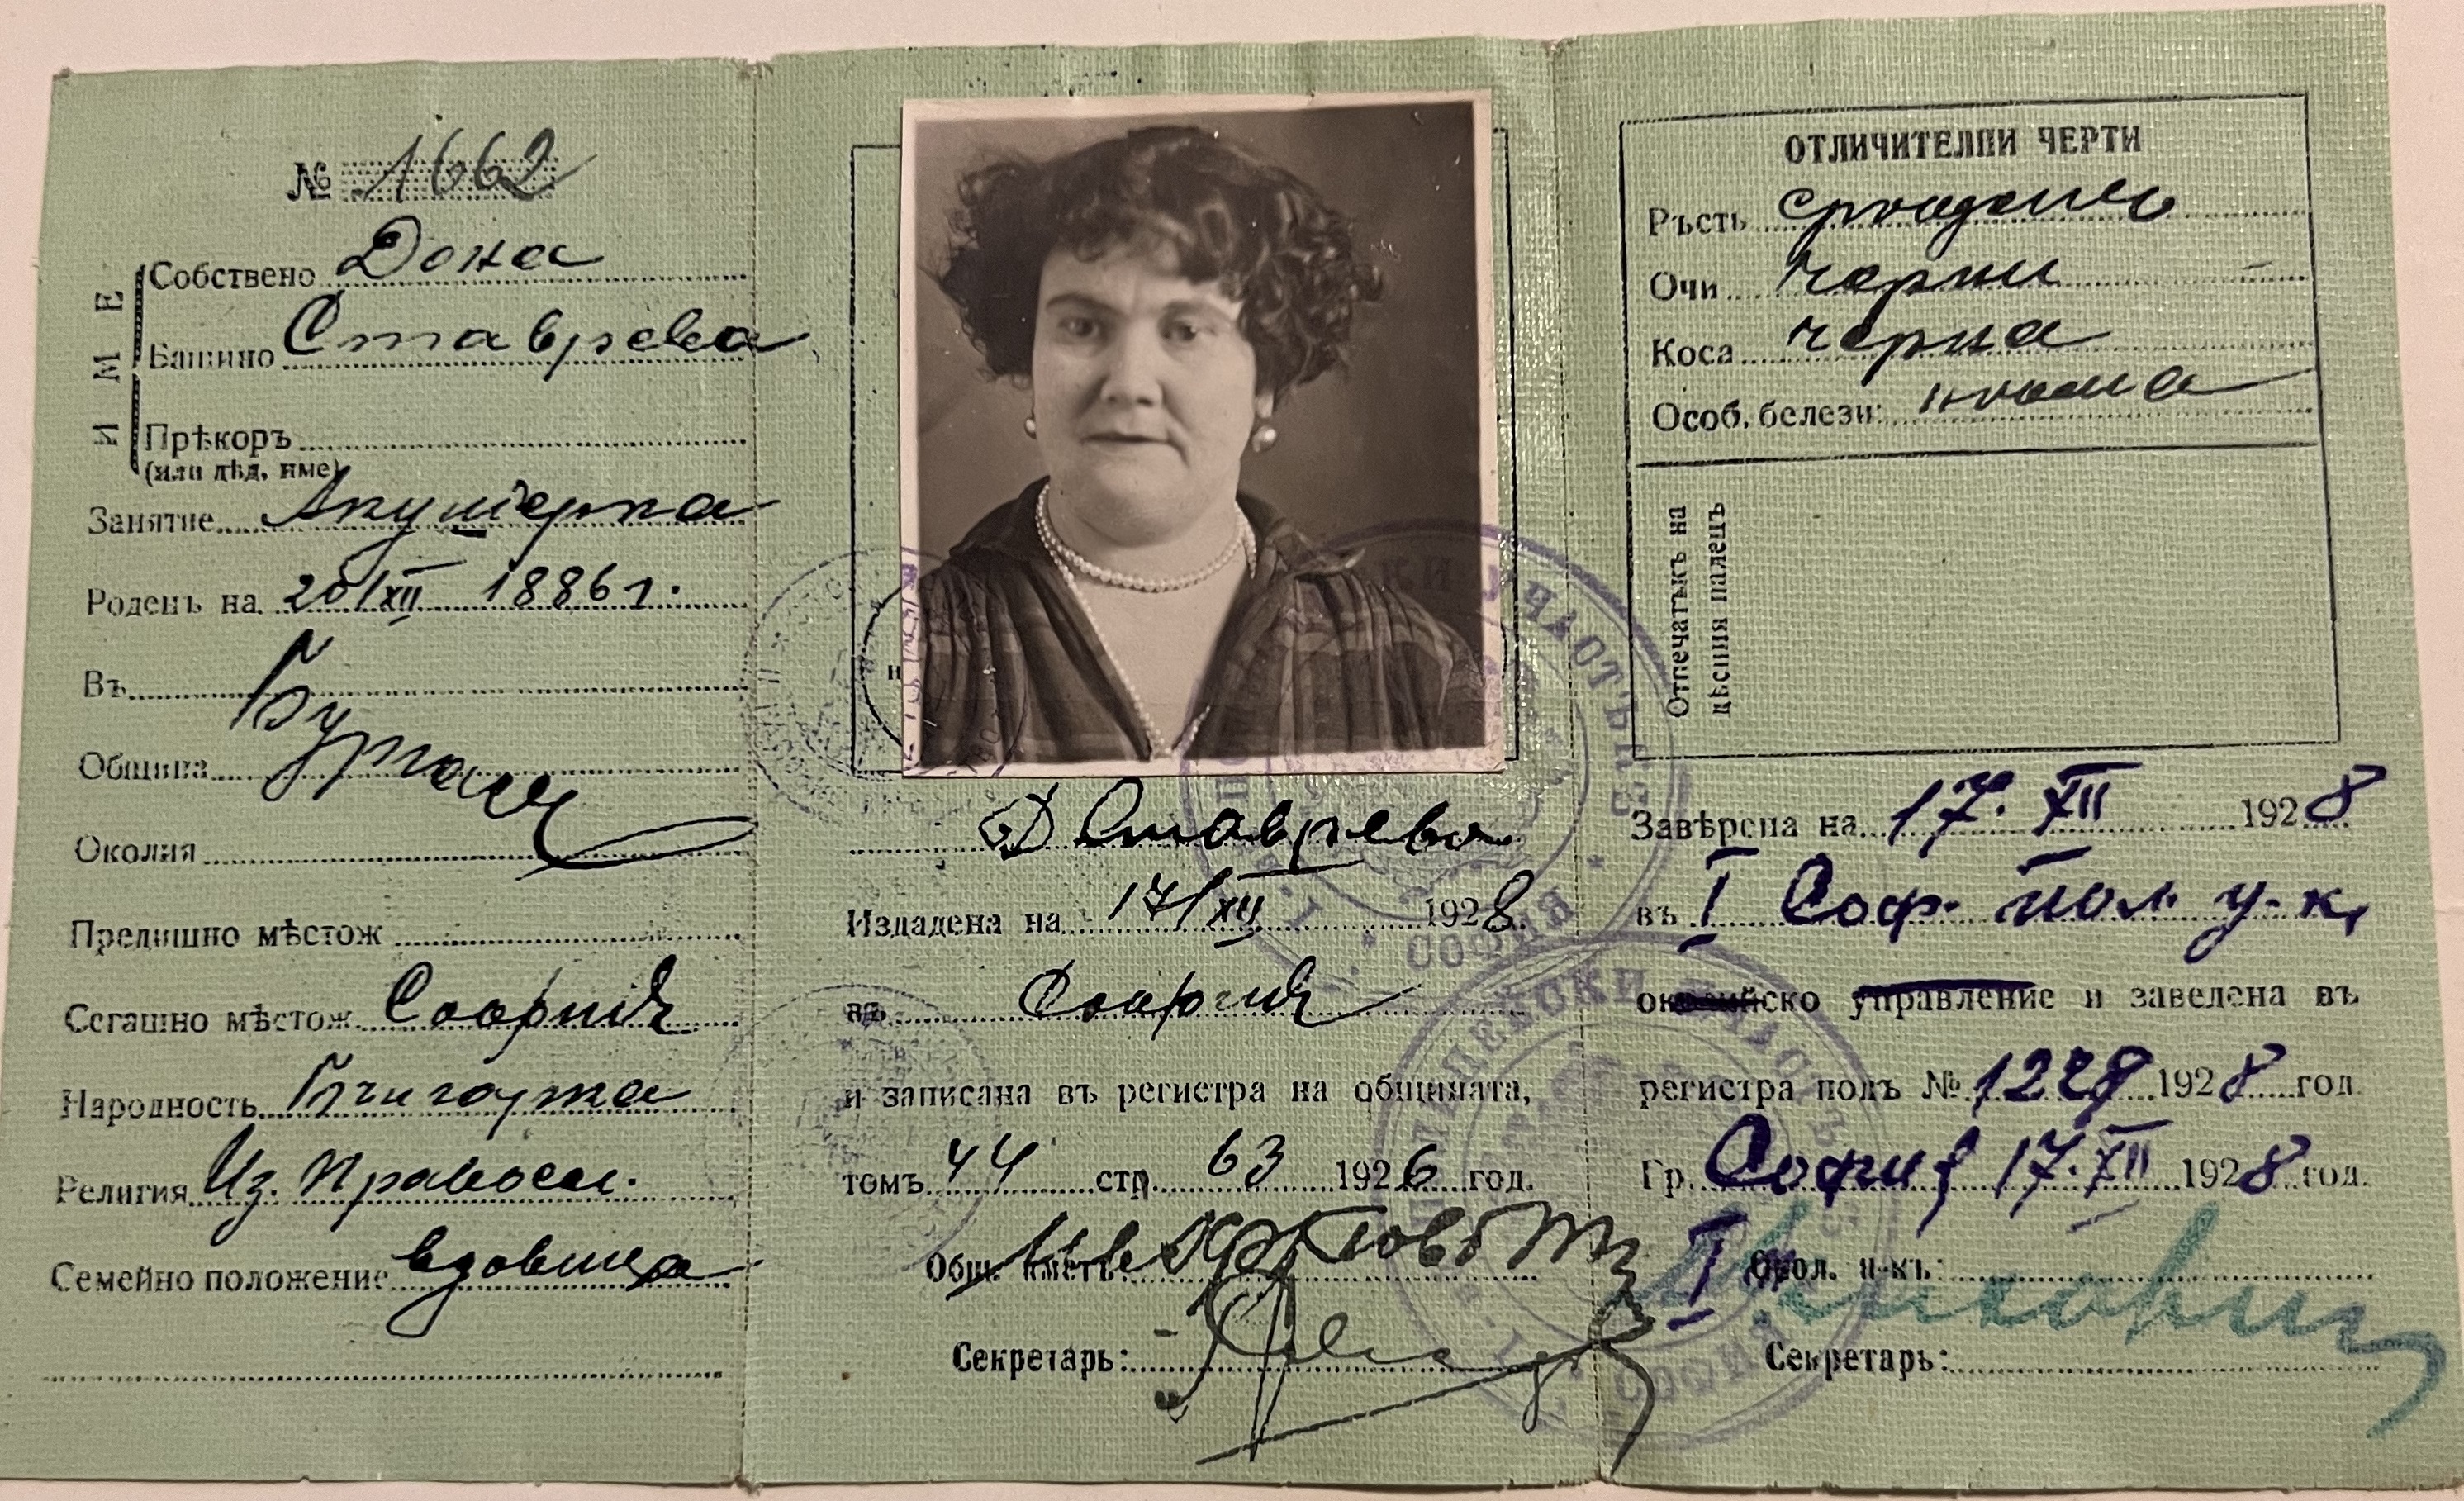 № 1662
ИМЕ
Собствено Дона
Бащино Ставрева
Прѣкоръ
(или дѣд. име)
Занятие Акушерка
Роденъ на 20/XII 1886 г.
Въ
Бургас
Община
Околия
Предишно мѣстож
Сегашно мѣстож. София
Народность Българка
Религия Из. Правосл.
Семейно положение вдовица
Д Ставрева
Издадена на 17/XII 1928
въ София
и записана въ регистра на общината,
томъ 44 стр 63 1926 год.
Общ. кметъ:
Секретарь:
ОТЛИЧИТЕЛНИ ЧЕРТИ
Ръстъ срѣденъ
Очи черни
Коса черна
Особ. белези: няма
Отпечатъкъ на
дѣсния палецъ
Завѣрена на 17. XII 1928
въ I Соф. пол. у-к,
околийско управление и заведена въ
регистра подъ № 1228 1928 год.
Гр. София 17. XII 1928 год.
I Окол. н-къ:
Секретарь:
СОФИЯ